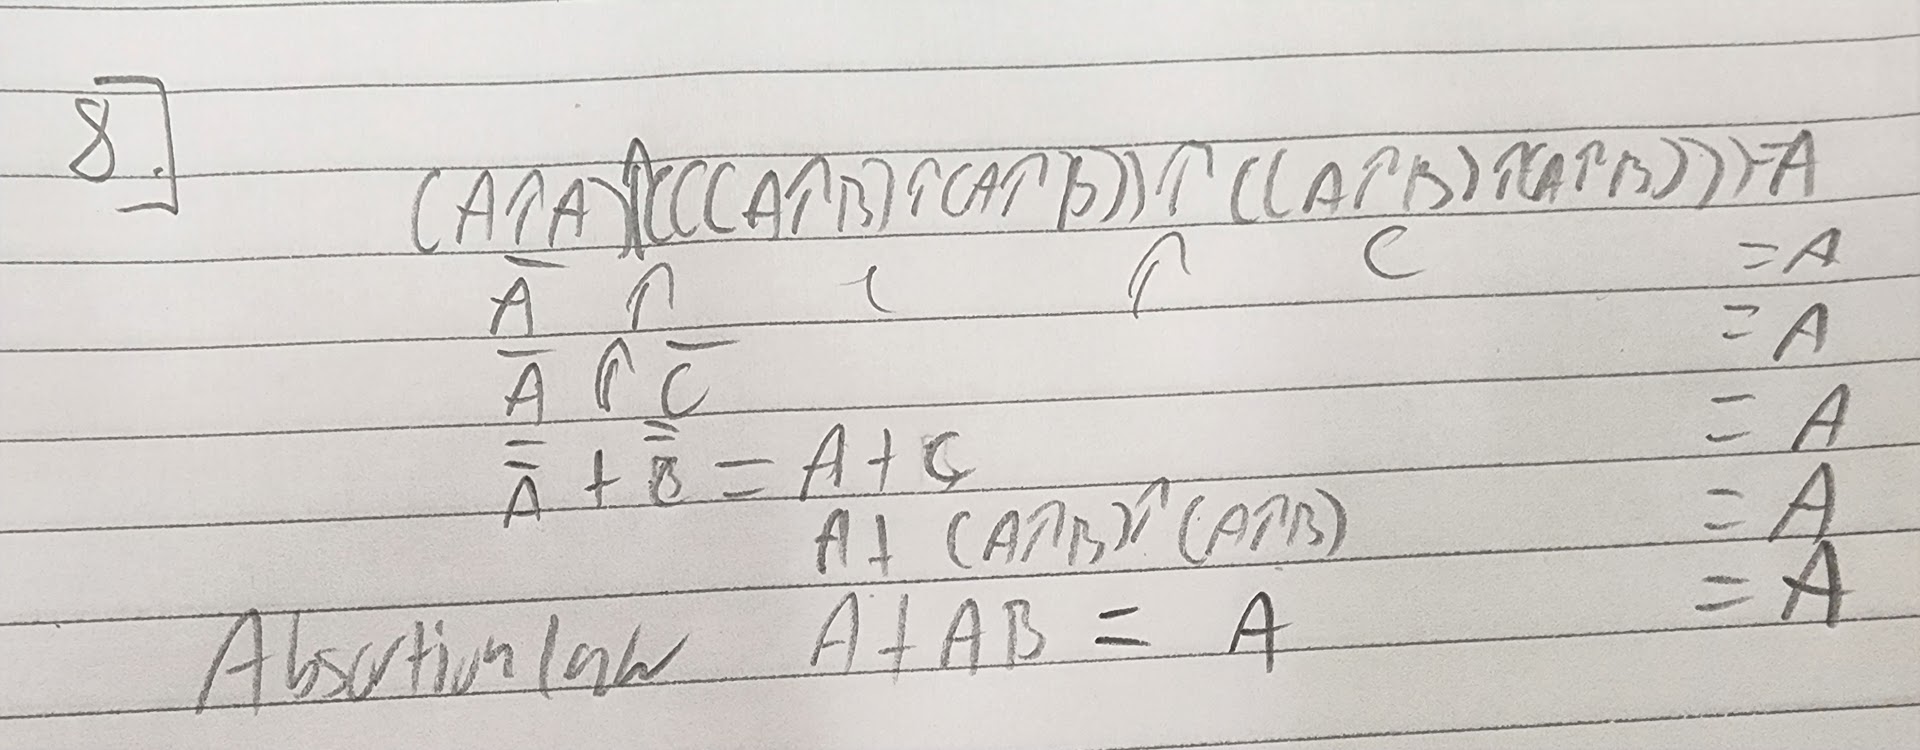 8.]
(A↑A)↑(((A↑B)↑(A↑B))↑((A↑B)↑(A↑B))))=A
A̅ ↑ C ↑ C =A
A̅ ↑ C̅ =A
A̿ + B̿ = A+C =A
A+ (A↑B)↑(A↑B) =A
Absortion law A+AB = A =A